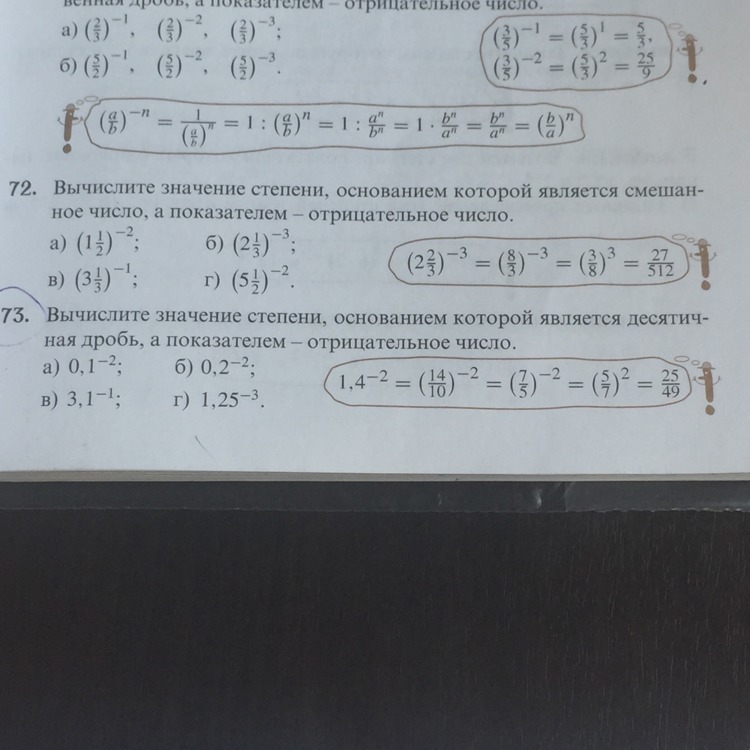 венная дробь, а показателем – отрицательное число.
а) (2/3)⁻¹, (2/3)⁻², (2/3)⁻³;
б) (5/2)⁻¹, (5/2)⁻², (5/2)⁻³.
(3/5)⁻¹ = (5/3)¹ = 5/3,
(3/5)⁻² = (5/3)² = 25/9
(a/b)⁻ⁿ = 1/(a/b)ⁿ = 1 : (a/b)ⁿ = 1 : aⁿ/bⁿ = 1 · bⁿ/aⁿ = bⁿ/aⁿ = (b/a)ⁿ
72. Вычислите значение степени, основанием которой является смешан-
ное число, а показателем – отрицательное число.
а) (1 1/2)⁻²; б) (2 1/3)⁻³;
в) (3 1/3)⁻¹; г) (5 1/2)⁻².
(2 2/3)⁻³ = (8/3)⁻³ = (3/8)³ = 27/512
73. Вычислите значение степени, основанием которой является десятич-
ная дробь, а показателем – отрицательное число.
а) 0,1⁻²; б) 0,2⁻²;
в) 3,1⁻¹; г) 1,25⁻³.
1,4⁻² = (14/10)⁻² = (7/5)⁻² = (5/7)² = 25/49